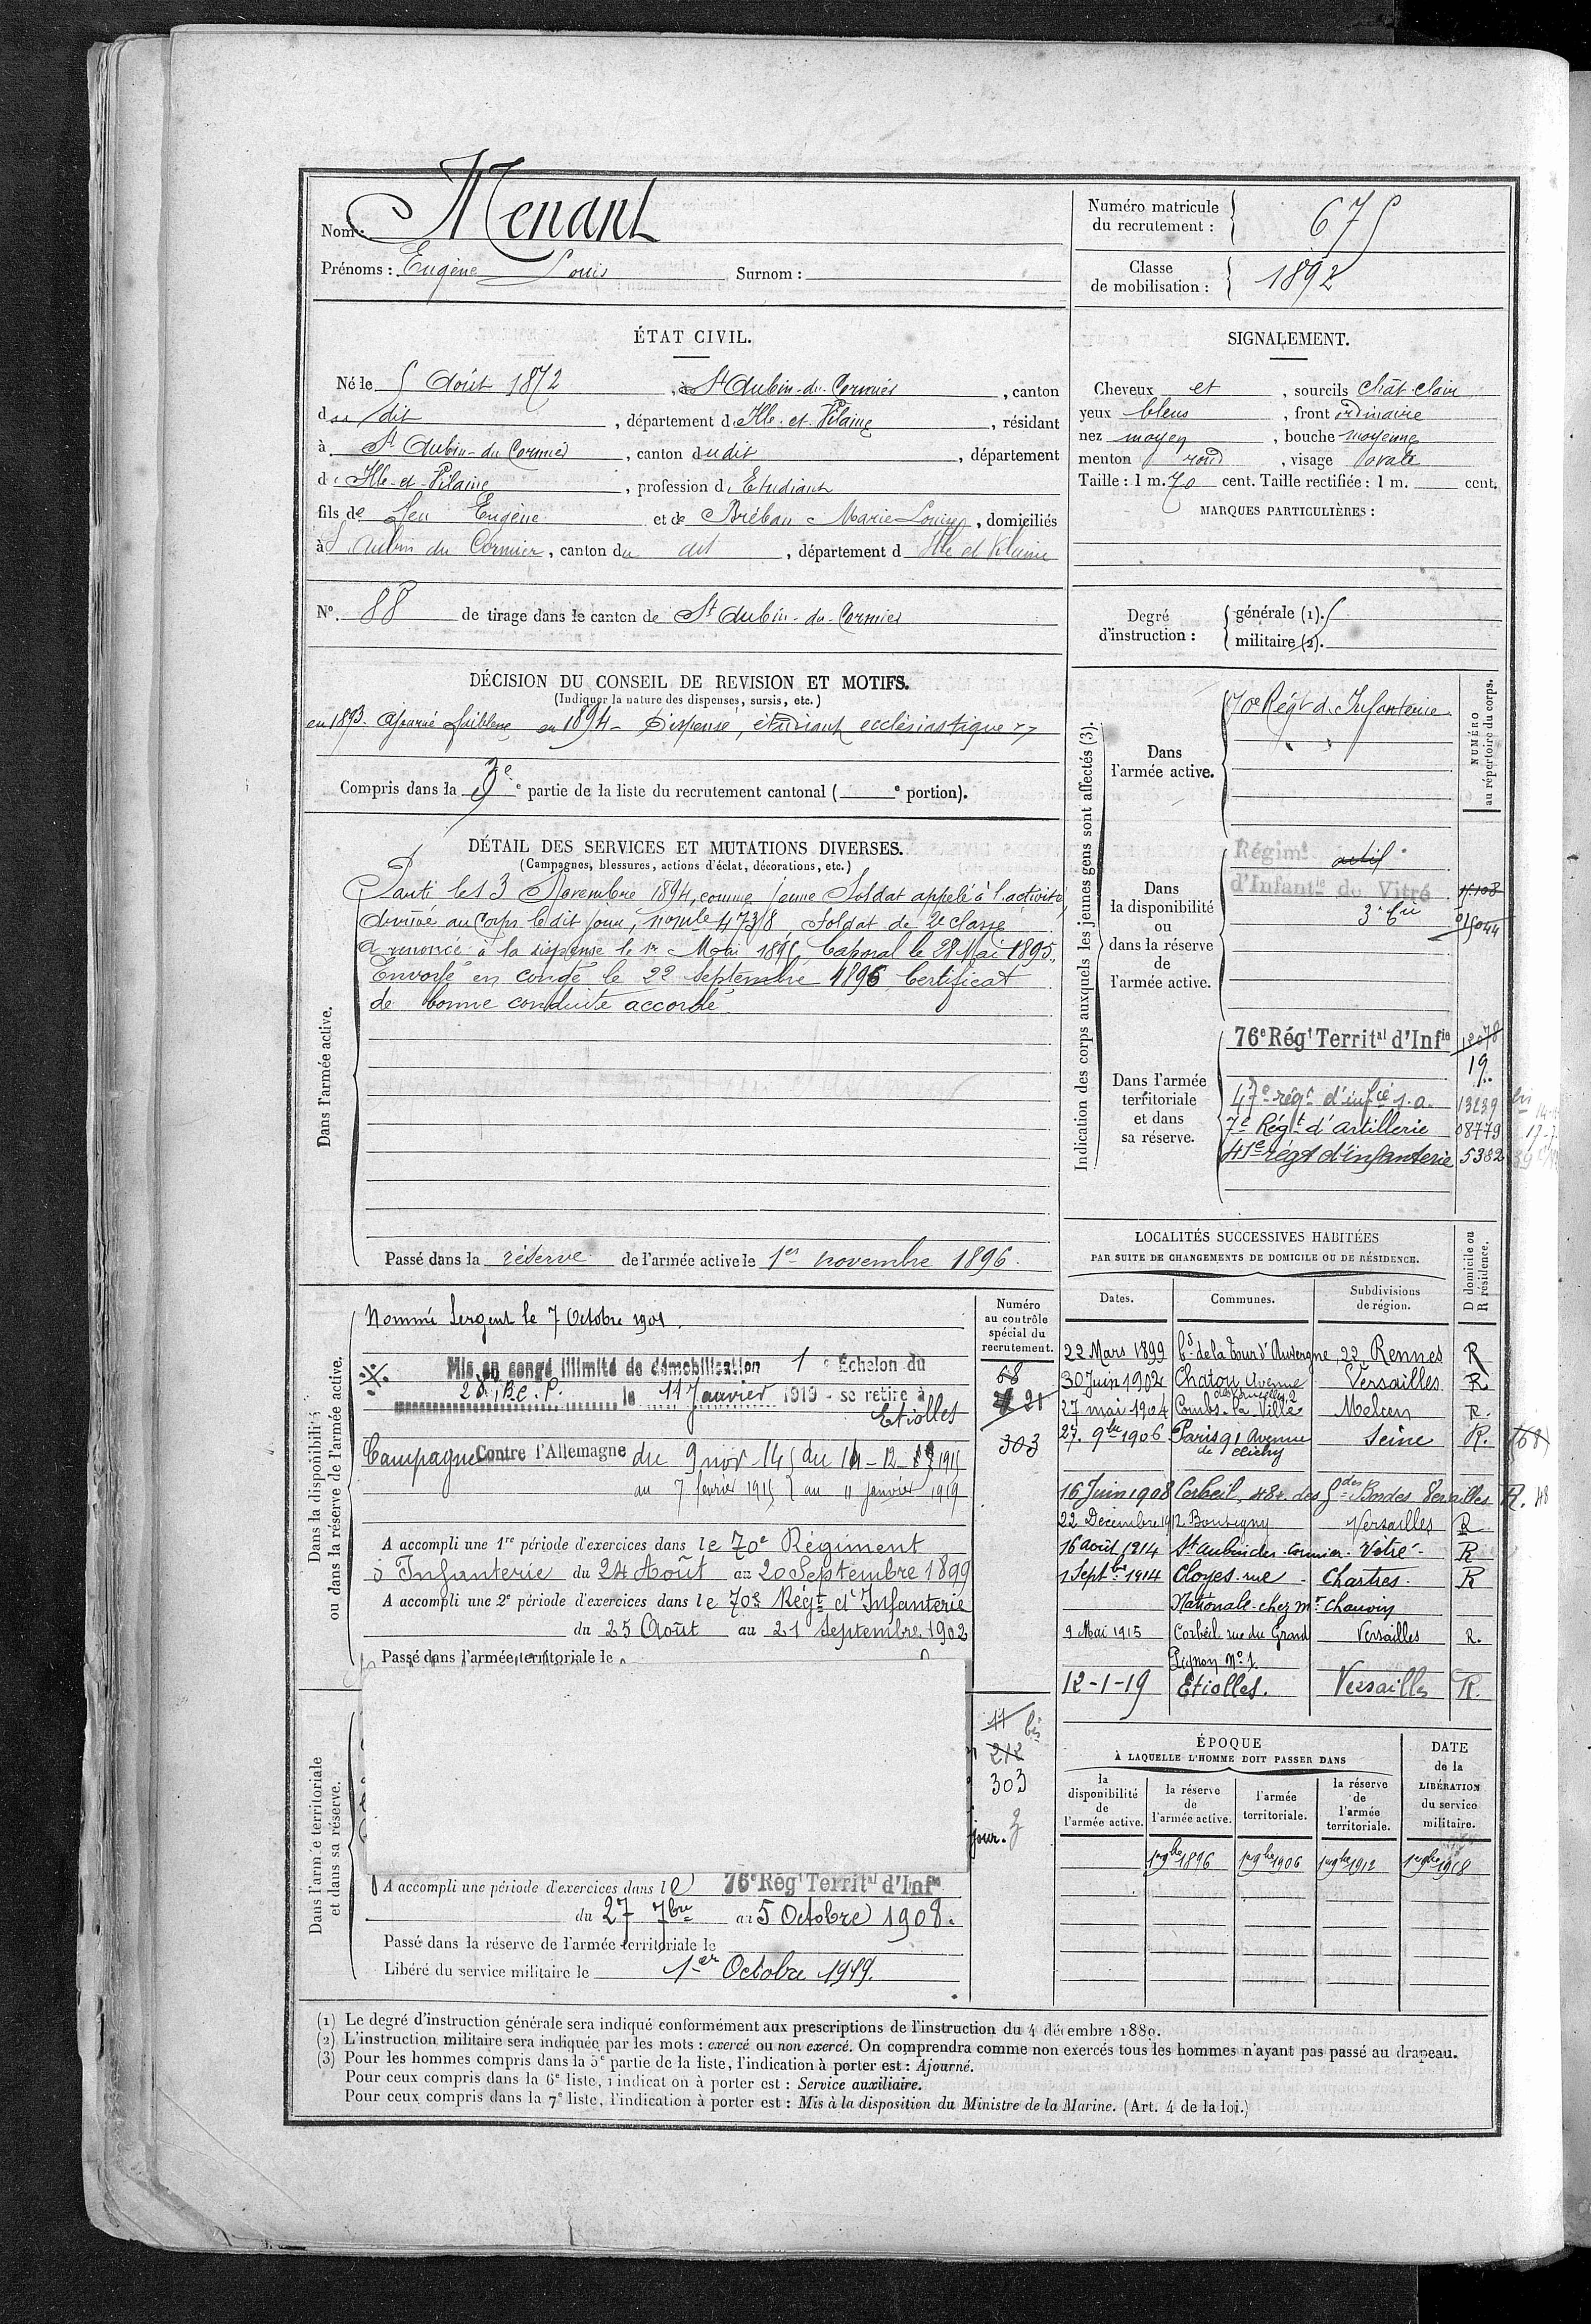 Nom : Menant
Prénoms : Eugène Louis Surnom :
Numéro matricule du recrutement : 675
Classe de mobilisation : 1892
ÉTAT CIVIL.
Né le 5 Août 1872, à St Aubin-du-Cormier, canton
du dit, département d'Ille-et-Vilaine, résidant
à St Aubin-du-Cormier, canton dudit, département
d'Ille-et-Vilaine, profession d'Etudiant
fils de feu Eugène et de Bréban Marie Louise, domiciliés
à St Aubin du Cormier, canton du dit, département d Ille et Vilaine
N° 88 de tirage dans le canton de St Aubin-du-Cormier
SIGNALEMENT.
Cheveux et, sourcils chât. clair
yeux bleus, front ordinaire
nez moyen, bouche moyenne
menton rond, visage ovale
Taille : 1 m. 70 cent. Taille rectifiée : 1 m. cent.
MARQUES PARTICULIÈRES :
Degré d'instruction :
générale (1). 5
militaire (2).
DÉCISION DU CONSEIL DE REVISION ET MOTIFS.
(Indiquer la nature des dispenses, sursis, etc.)
en 1893. Ajourné faiblesse en 1894 - Dispensé, étudiant ecclésiastique
Compris dans la 3e e partie de la liste du recrutement cantonal ( e portion).
DÉTAIL DES SERVICES ET MUTATIONS DIVERSES.
(Campagnes, blessures, actions d'éclat, décorations, etc.)
Dans l'armée active.
Parti le 13 Novembre 1894, comme jeune Soldat appelé à l'activité,
Arrivé au Corps le dit jour, no mle 4738, Soldat de 2e classe
A renoncé à la dispense le 1er Mai 1895, Caporal le 28 Mai 1895.
Envoyé en congé le 22 septembre 1896 Certificat
de bonne conduite accordé
Passé dans la réserve de l'armée active le 1er novembre 1896.
Indication des corps auxquels les jeunes gens sont affectés (3).
NUMÉRO au répertoire du corps.
Dans l'armée active.
70e Régt d'Infanterie
Dans la disponibilité ou dans la réserve de l'armée active.
Régimt actif
d'Infantie de Vitré
Dans l'armée territoriale et dans sa réserve.
76e Régt Territal d'Infie
19
47e régt d'infie 13239
7e Régt d'artillerie 08779
41e régt d'infanterie 5382
Dans la disponibilité ou dans la réserve de l'armée active.
Numéro au contrôle spécial du recrutement.
Nommé Sergent le 7 Octobre 1901.
Mis en congé illimité de démobilisation 1 Échelon du
le 11 Janvier 1919 - se retire à
Etiolles
68
21
303
Campagne Contre l'Allemagne du 9 nov. 14 au 14-12-1915
du 7 février 1915 au 11 janvier 1919
A accompli une 1re période d'exercices dans le 70e Régiment
d'Infanterie du 24 Août au 20 Septembre 1899
A accompli une 2e période d'exercices dans le 70e Régt d'Infanterie
du 25 Août au 21 Septembre 1902
Passé dans l'armée territoriale le
Dans l'armée territoriale et dans sa réserve.
11 bis
212
303
jour.
A accompli une période d'exercices dans le 76e Régt Territal d'Infie
du 27 7bre au 5 Octobre 1908.
Passé dans la réserve de l'armée territoriale le
Libéré du service militaire le 1er Octobre 1919.
LOCALITÉS SUCCESSIVES HABITÉES
PAR SUITE DE CHANGEMENTS DE DOMICILE OU DE RÉSIDENCE.
Dates. Communes. Subdivisions de région. D domicile ou R résidence.
22 Mars 1899 Bd de la Tour d'Auvergne, 22 Rennes R
30 Juin 1902 Chatou Avenue Versailles R
27 mai 1904 Combs-la-Ville Melun R.
27. 9bre 1906 Paris 91 Avenue de Clichy Seine R.
16 Juin 1908 Corbeil, 48 r. des Gdes Bordes Versailles R.
22 Décembre 1912 Boutigny Versailles R
16 août 1914 St aubin du-cormier Vitré R
1 Septbre 1914 Cloyes. rue Chartres. R
Nationale chez Mr Chauvin
9 Mai 1915 Corbeil rue du Grand Versailles R.
Pignon No 1
12-1-19 Etiolles. Versailles R.
ÉPOQUE
À LAQUELLE L'HOMME DOIT PASSER DANS
la disponibilité de l'armée active.
la réserve de l'armée active.
l'armée territoriale.
la réserve de l'armée territoriale.
DATE de la LIBÉRATION du service militaire.
1er 9bre 1896 1er 9bre 1906 1er 9bre 1912 1er 9bre 1918
(1) Le degré d'instruction générale sera indiqué conformément aux prescriptions de l'instruction du 4 décembre 1889.
(2) L'instruction militaire sera indiquée par les mots : exercé ou non exercé. On comprendra comme non exercés tous les hommes n'ayant pas passé au drapeau.
(3) Pour les hommes compris dans la 5e partie de la liste, l'indication à porter est : Ajourné.
Pour ceux compris dans la 6e liste, l'indication à porter est : Service auxiliaire.
Pour ceux compris dans la 7e liste, l'indication à porter est : Mis à la disposition du Ministre de la Marine. (Art. 4 de la loi.)